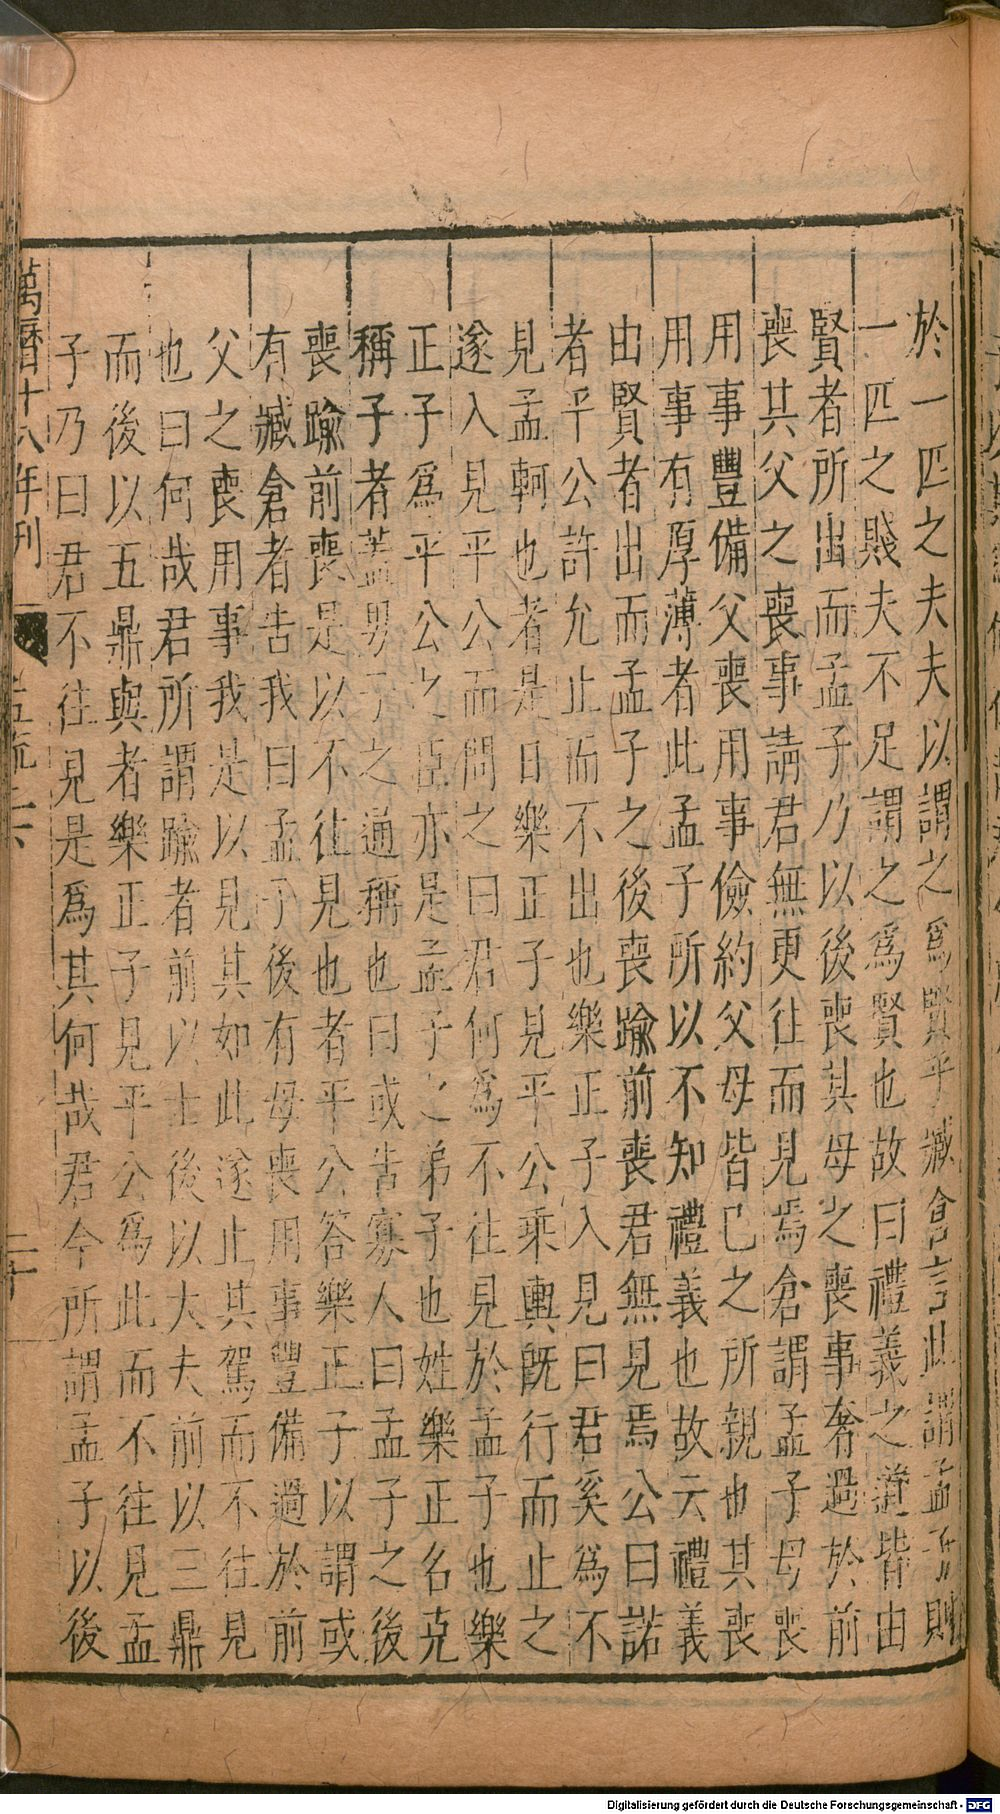 於一匹之夫夫以謂之為賢乎臧倉言此謂孟子則
一匹之賤夫不足謂之為賢也故曰禮義之道皆由
賢者所出而孟子乃以後喪其母之喪事奢過於前
喪其父之喪事請君無更往而見焉倉謂孟子母喪
用事豐備父喪用事儉約父母皆己之所親也其喪
用事有厚薄者此孟子所以不知禮義也故云禮義
由賢者出而孟子之後喪踰前喪君無見焉公曰諾
者平公許允止而不出也樂正子入見曰君奚為不
見孟軻也者是日樂正子見平公乘輿既行而止之
遂入見平公而問之曰君何為不往見於孟子也樂
正子為平公之臣亦是孟子之弟子也姓樂正名克
稱子者蓋男子之通稱也曰或告寡人曰孟子之後
喪踰前喪是以不往見也者平公答樂正子以謂或
有臧倉者告我曰孟子後有母喪用事豐備過於前
父之喪用事我是以見其如此遂止其駕而不往見
也曰何哉君所謂踰者前以士後以大夫前以三鼎
而後以五鼎與者樂正子見平公為此而不往見孟
子乃曰君不往見是為其何哉君今所謂孟子以後
萬曆十八年刊
二十
Digitalisierung gefördert durch die Deutsche Forschungsgemeinschaft - DFG